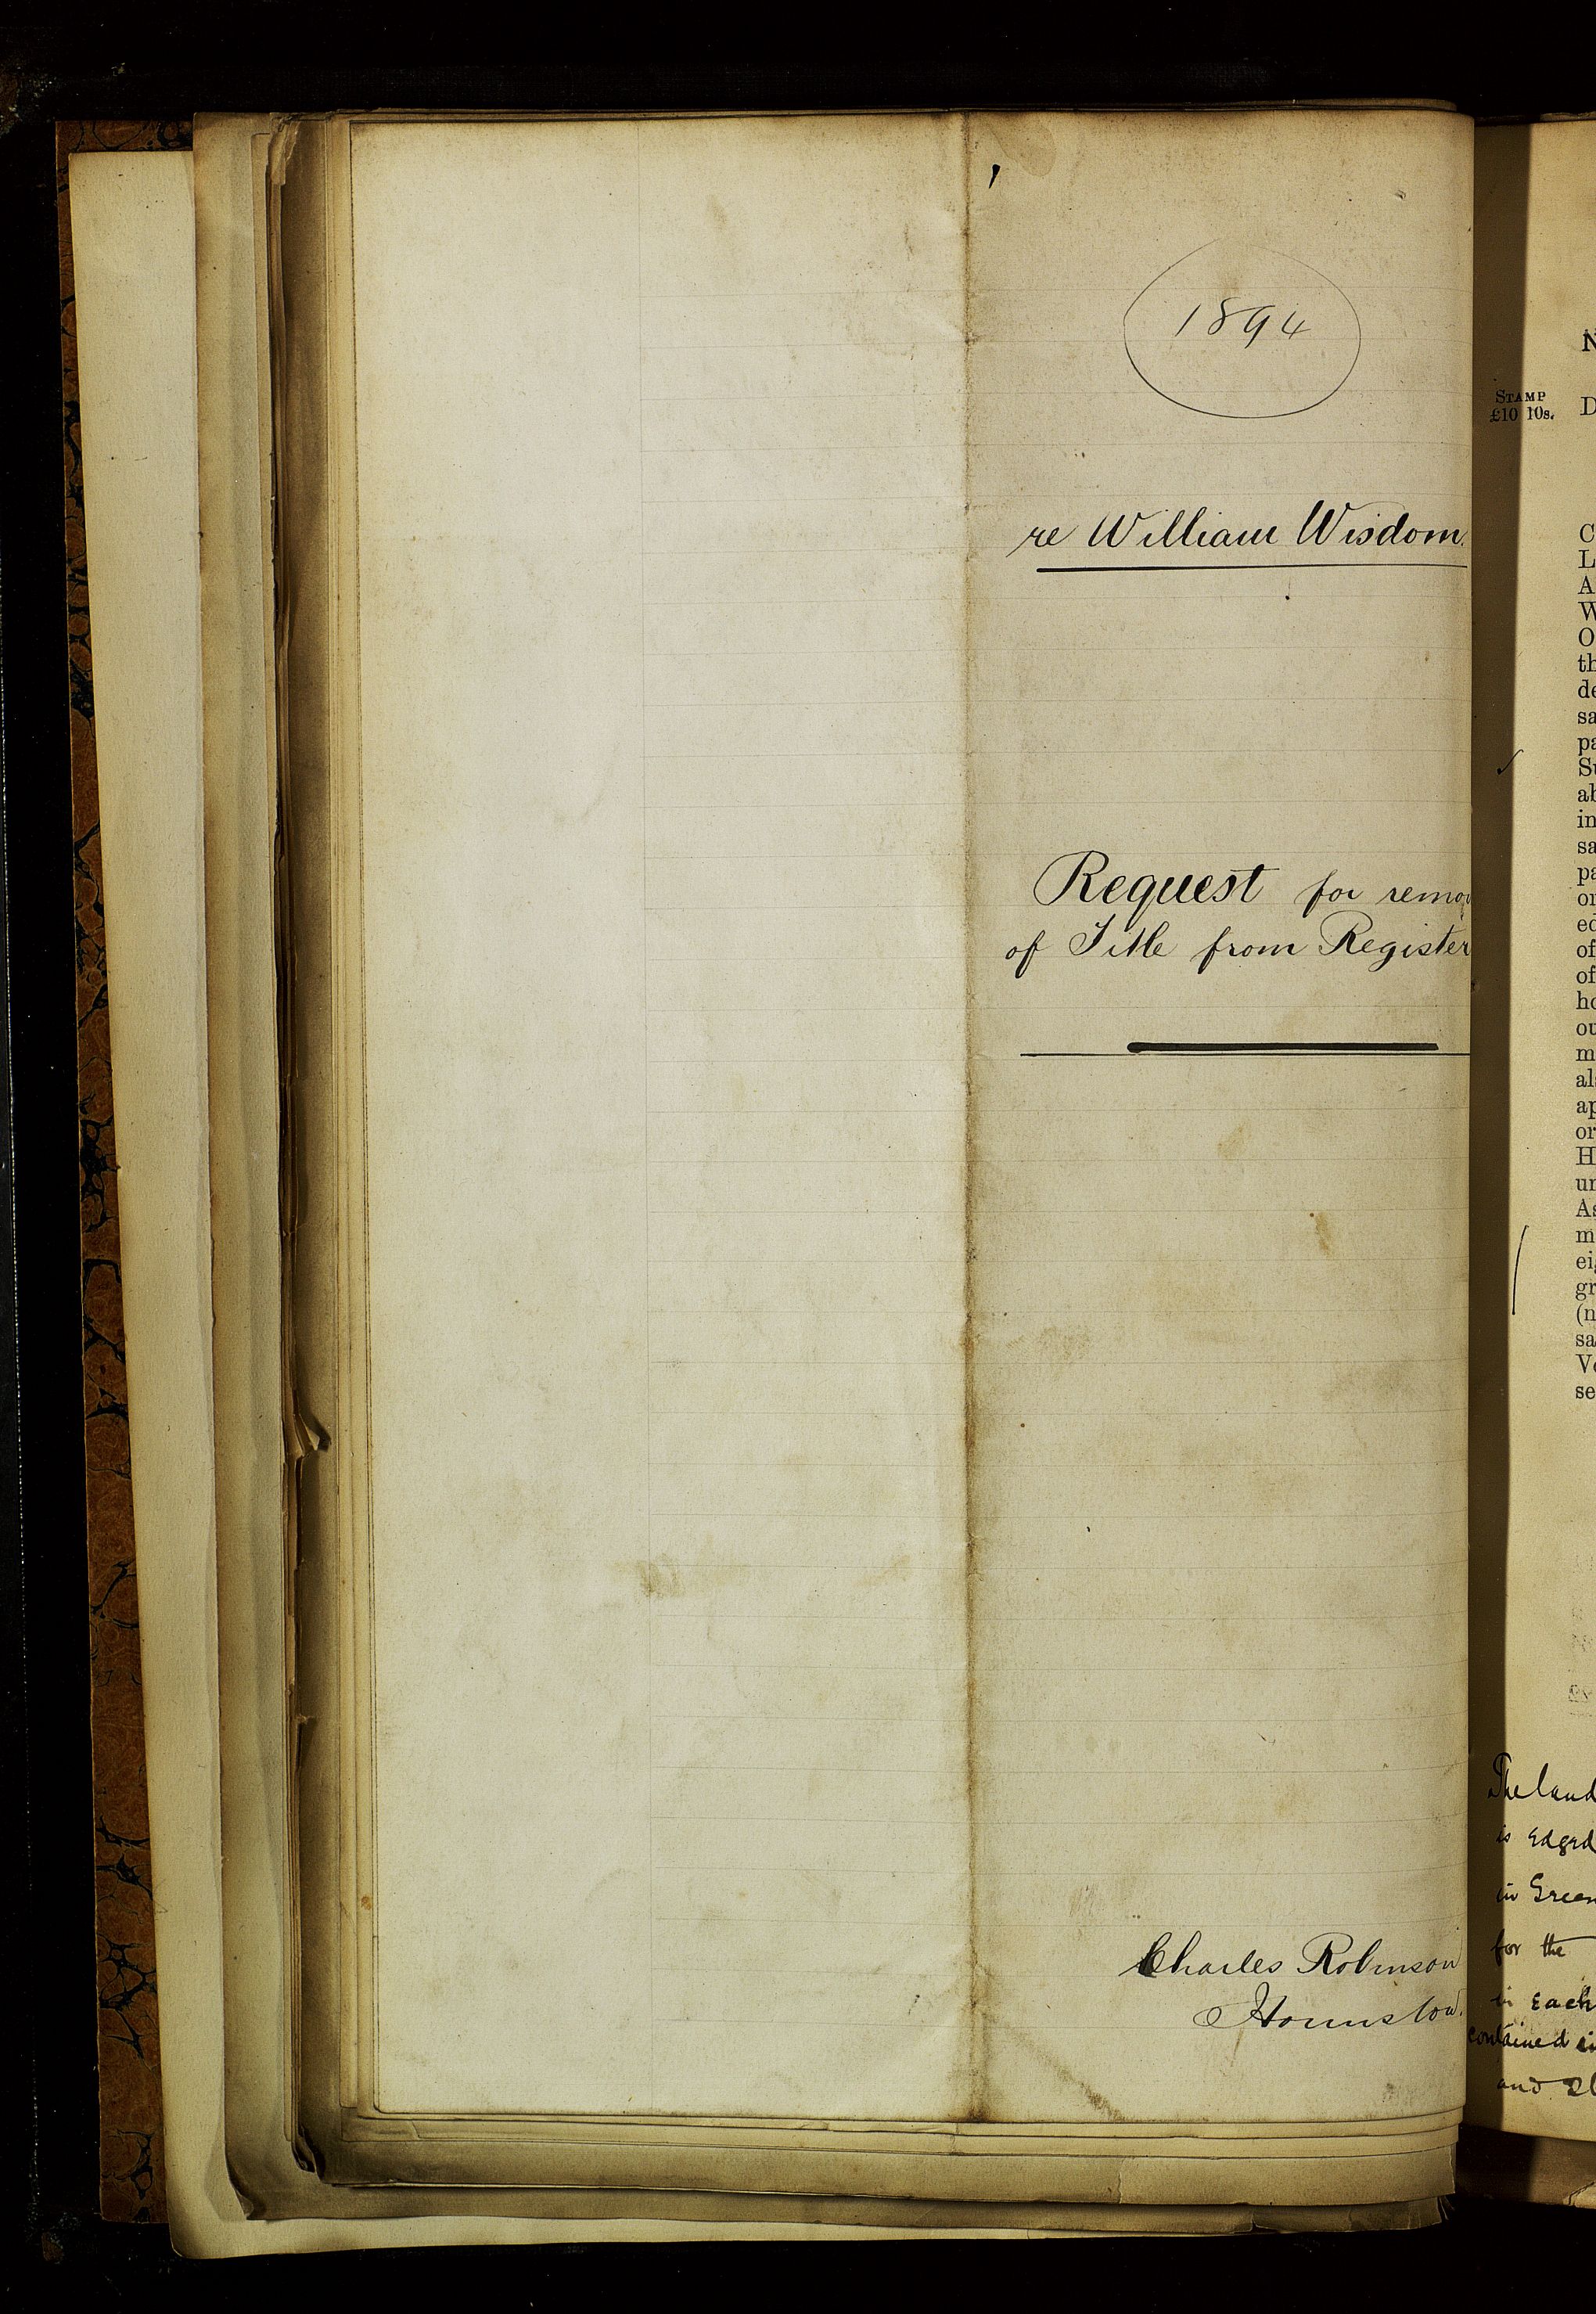 1894
re William Wisdom.
Request for remov
of Title from Register
Charles Robinson
Hounslow.
STAMP
£10 10s.
N
D
C
L
A
W
O
th
de
sa
pa
Su
ab
in
sa
pa
or
ed
of
of
ho
ou
m
als
ap
or
H
un
As
m
eig
gr
(n
sa
Ve
se
The land
is edged
in Green
for the
in each
contained in
and